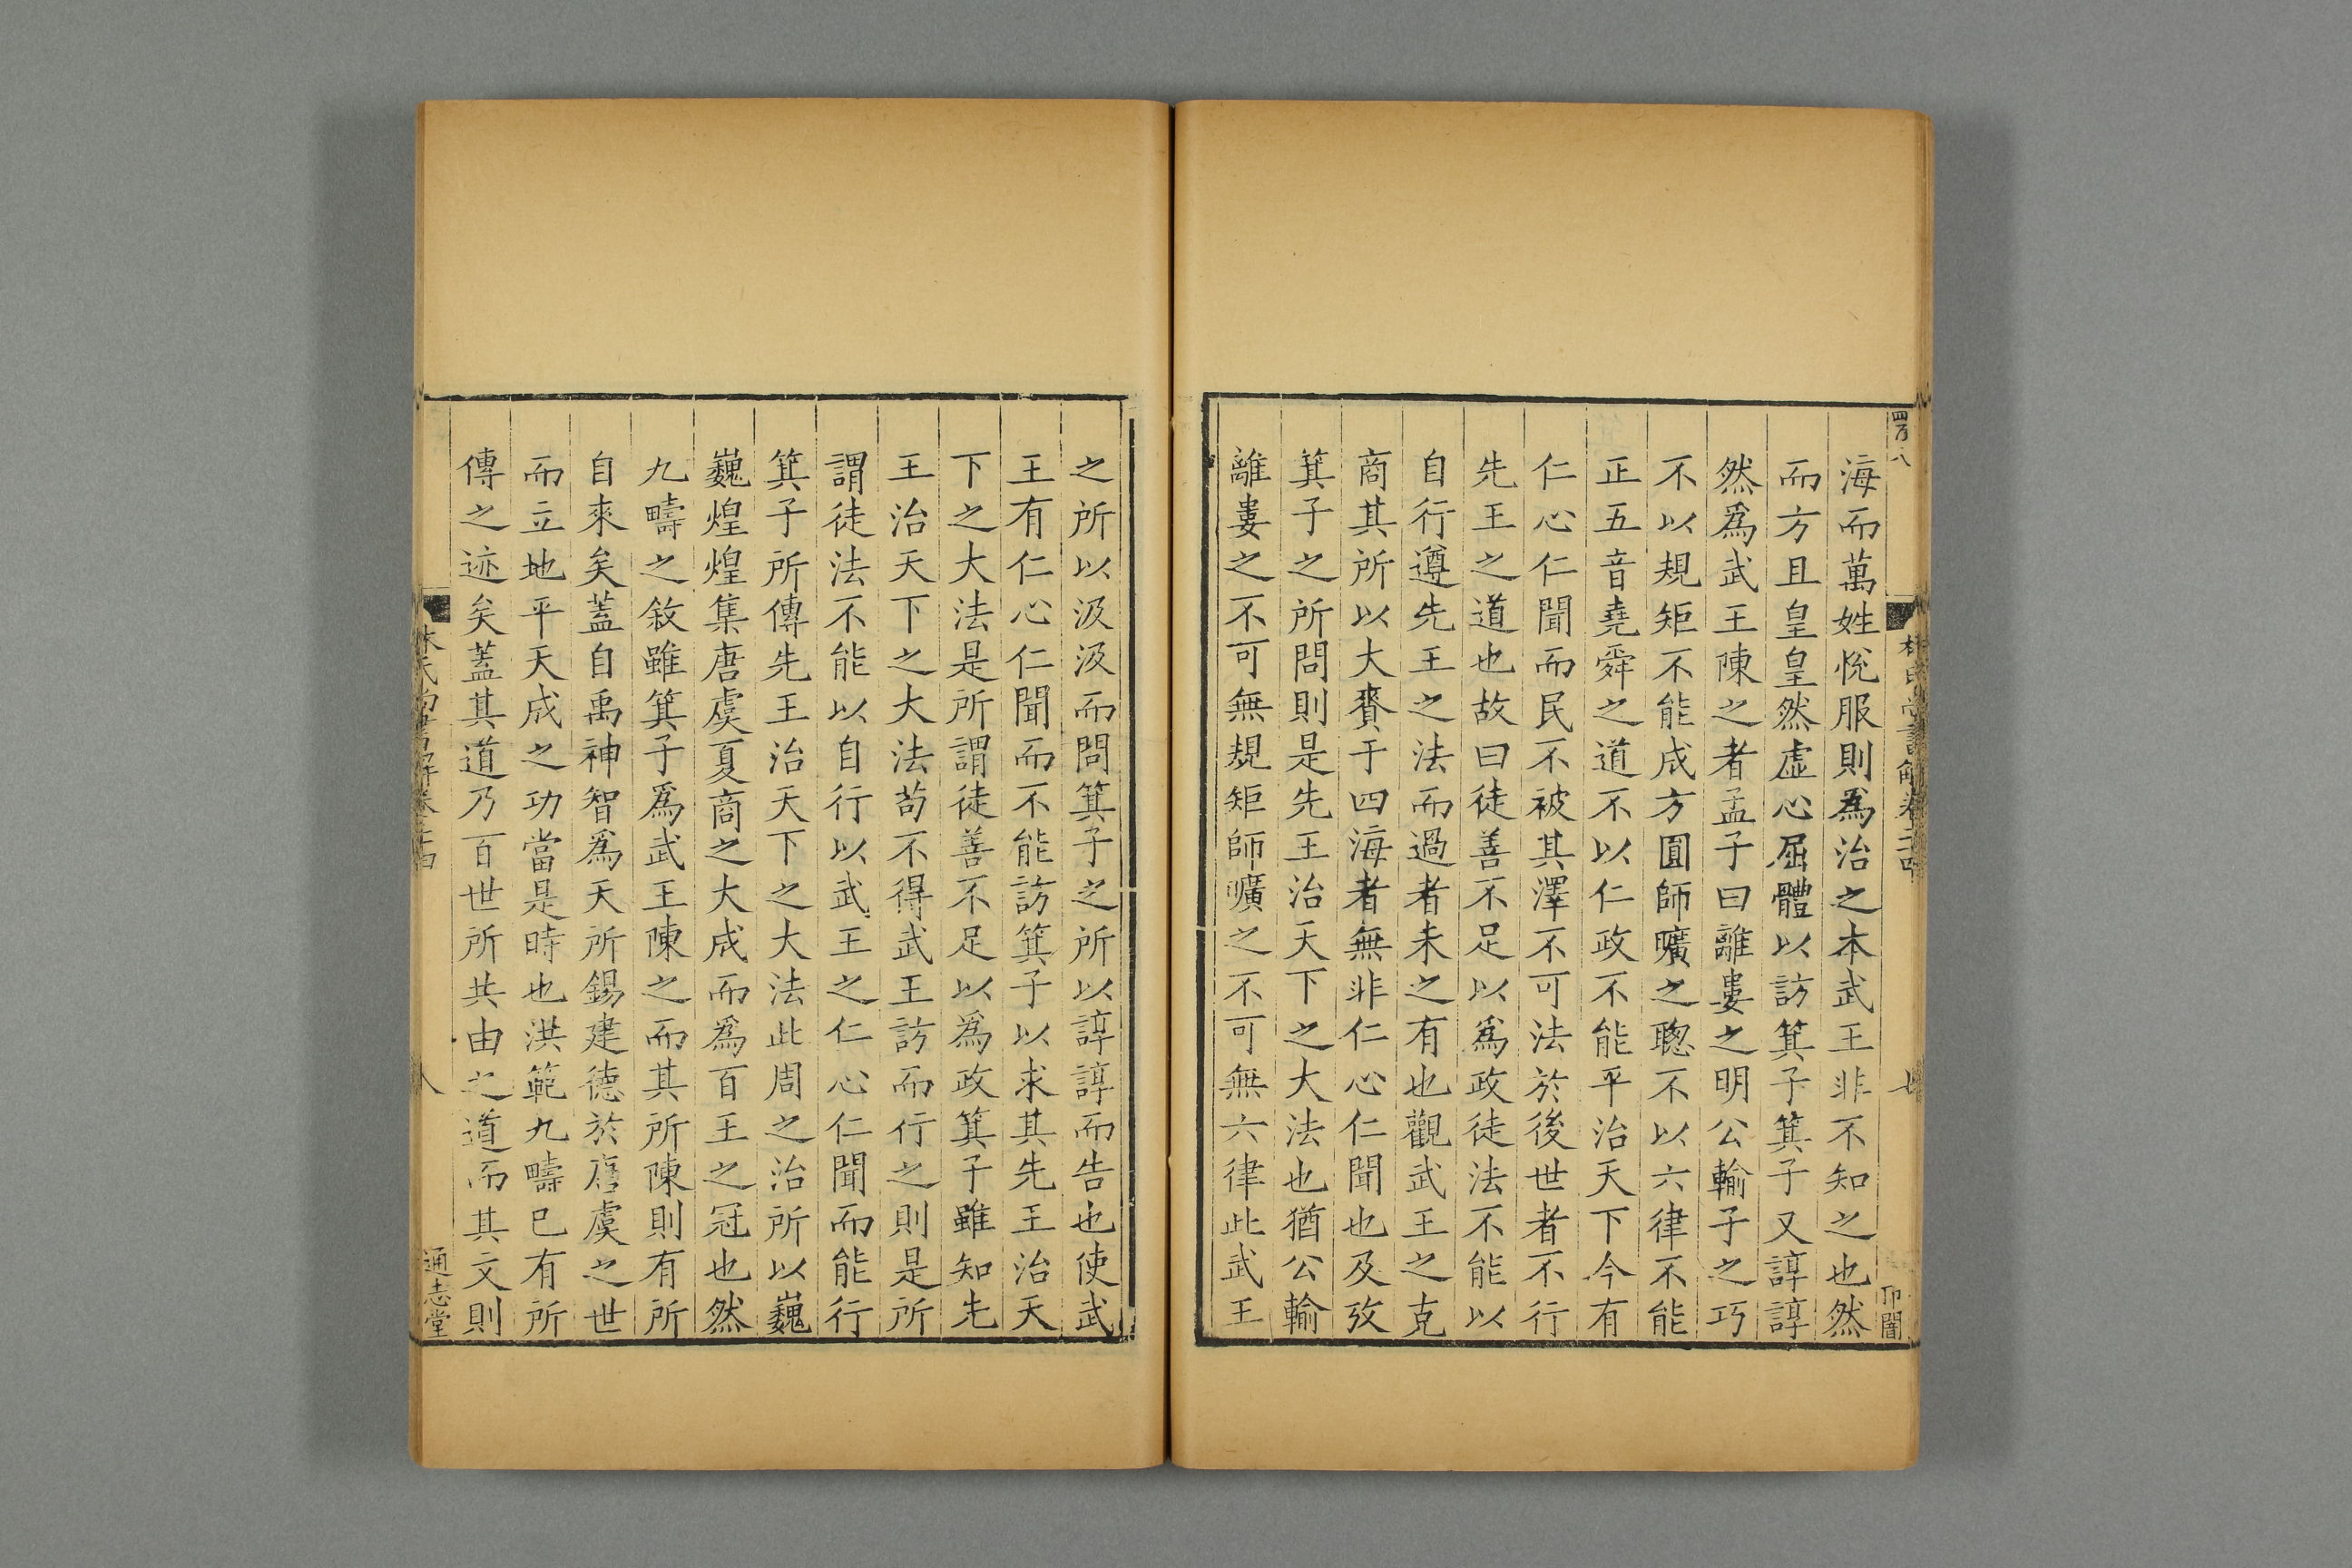 海而萬姓悅服則爲治之本武王非不知之也然
而方且皇皇然虛心屈體以訪箕子箕子又諄諄
然爲武王陳之者孟子曰離婁之明公輸子之巧
不以規矩不能成方圓師曠之聦不以六律不能
正五音堯舜之道不以仁政不能平治天下今有
仁心仁聞而民不被其澤不可法於後世者不行
先王之道也故曰徒善不足以爲政徒法不能以
自行遵先王之法而過者未之有也觀武王之克
商其所以大賚于四海者無非仁心仁聞也及攷
箕子之所問則是先王治天下之大法也猶公輸
離婁之不可無規矩師曠之不可無六律此武王
之所以汲汲而問箕子之所以諄諄而告也使武
王有仁心仁聞而不能訪箕子以求其先王治天
下之大法是所謂徒善不足以爲政箕子雖知先
王治天下之大法茍不得武王訪而行之則是所
謂徒法不能以自行以武王之仁心仁聞而能行
箕子所傳先王治天下之大法此周之治所以巍
巍煌煌集唐虞夏商之大成而爲百王之冠也然
九疇之敘雖箕子爲武王陳之而其所陳則有所
自來矣蓋自禹神智爲天所錫建德於唐虞之世
而立地平天成之功當是時也洪範九疇已有所
傳之迹矣蓋其道乃百世所共由之道而其文則
林氏尚書解卷二十四
八
通志堂